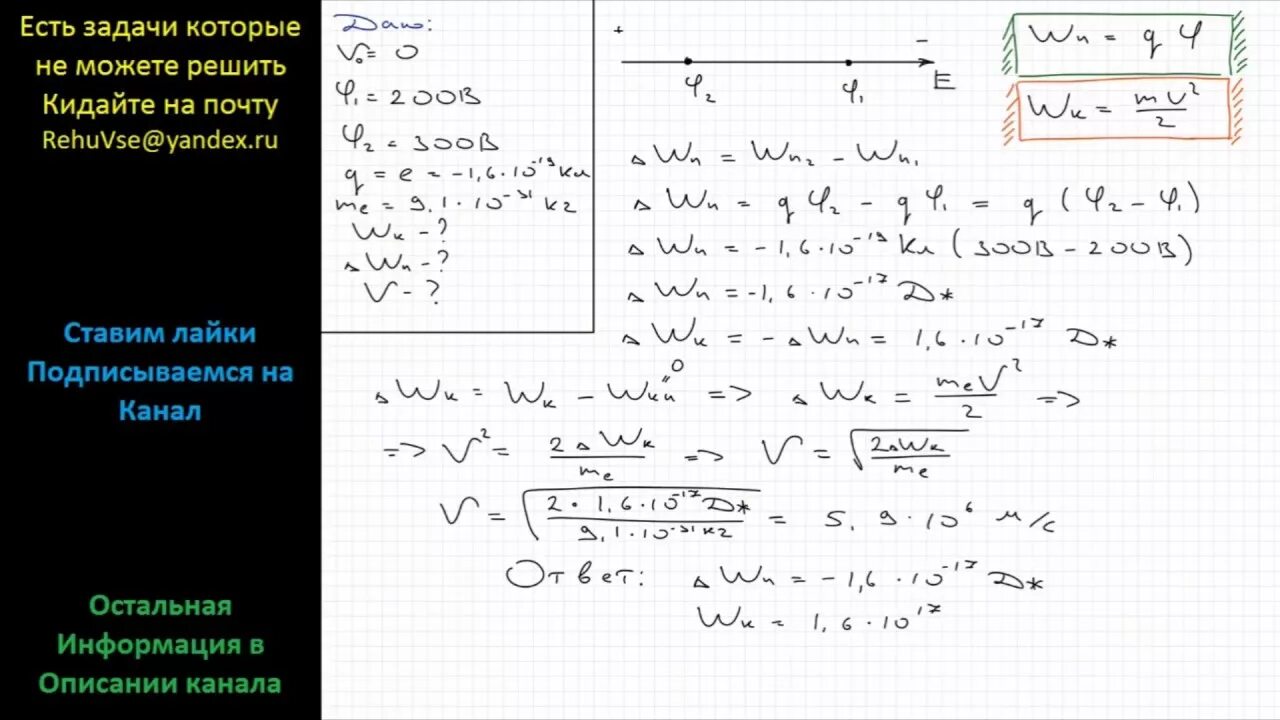 Есть задачи которые
не можете решить
Кидайте на почту
RehuVse@yandex.ru
Ставим лайки
Подписываемся на
Канал
Остальная
Информация в
Описании канала
Дано:
V₀ = 0
φ₁ = 200В
φ₂ = 300В
q = e = -1,6·10⁻¹⁹ Кл
mₑ = 9,1·10⁻³¹ кг
Wк - ?
ΔWп - ?
V - ?
+ −
φ₂ φ₁ E
Wп = qφ
Wк = mV²/2
ΔWп = Wп₂ - Wп₁
ΔWп = qφ₂ - qφ₁ = q(φ₂ - φ₁)
ΔWп = -1,6·10⁻¹⁹ Кл (300В - 200В)
ΔWп = -1,6·10⁻¹⁷ Дж
ΔWк = -ΔWп = 1,6·10⁻¹⁷ Дж
ΔWк = Wк - Wкн => ΔWк = mₑV²/2 =>
0
=> V² = 2ΔWк/mₑ => V = √(2ΔWк/mₑ)
V = √(2·1,6·10⁻¹⁷ Дж/9,1·10⁻³¹ кг) = 5,9·10⁶ м/с
Ответ: ΔWп = -1,6·10⁻¹⁷ Дж
Wк = 1,6·10¹⁷